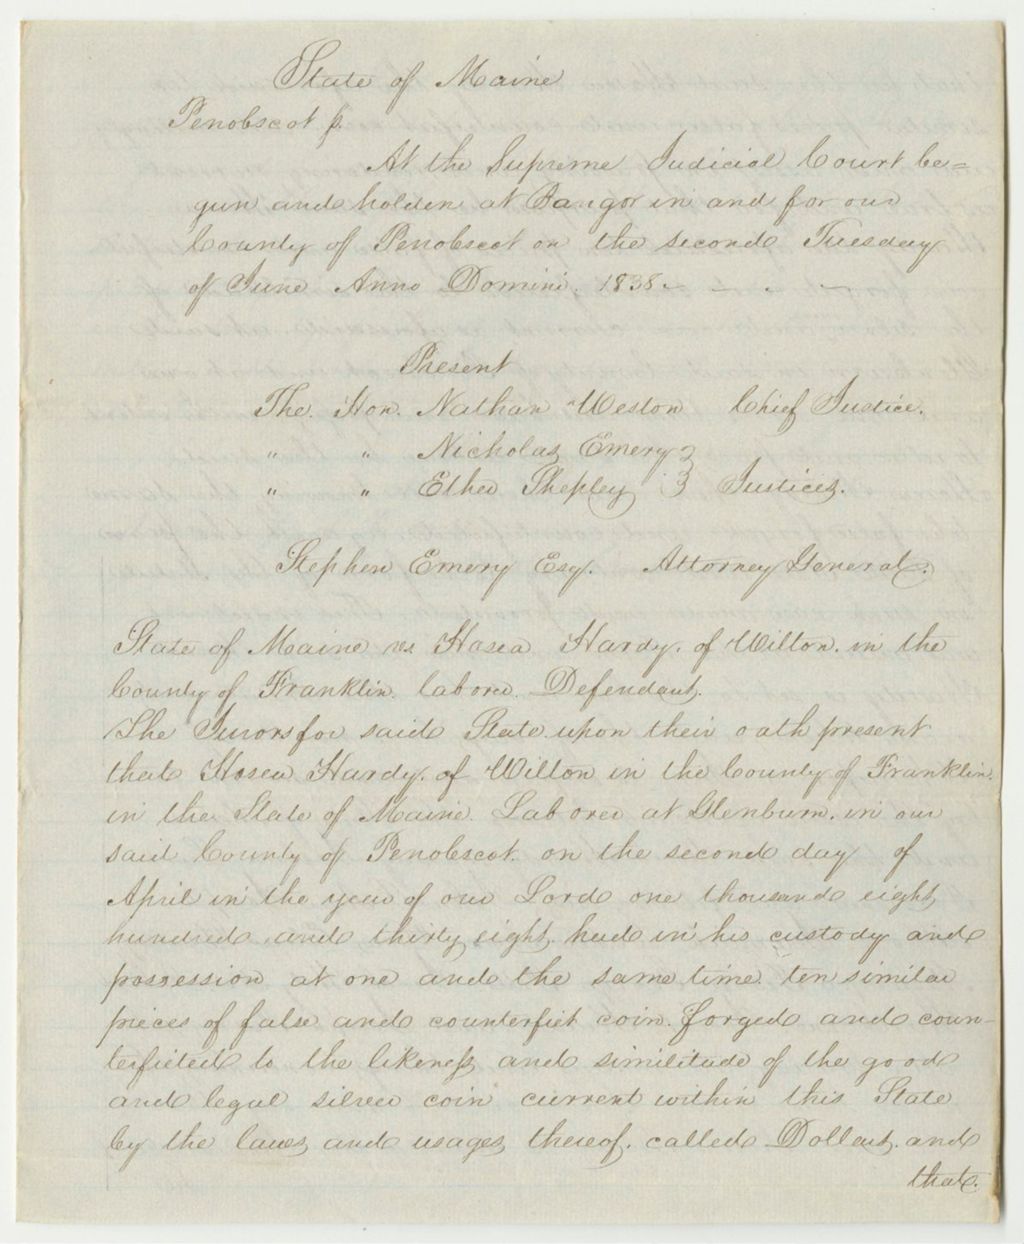 State of Maine
Penobscot ss.
At the Supreme Judicial Court be=
gun and holden at Bangor in and for our
County of Penobscot on the second Tuesday
of June Anno Domini. 1838
Present
The. Hon. Nathan Weston Chief Justice.
" " Nicholas Emery }
" " Ether Shepley } Justices.
Stephen Emery Esq. Attorney General.
State of Maine vs Hosea Hardy. of Wilton. in the
County of Franklin. laborer. Defendant.
The Jurors for said State upon their oath present
that Hosea Hardy. of Wilton in the County of Franklin.
in the State of Maine Laborer at Glenburn. in our
said County of Penobscot. on the second day of
April in the year of our Lord one thousand eight
hundred and thirty eight. had in his custody and
possession at one and the same time ten similar
pieces of false and counterfiet coin. forged and coun-
terfieted to the likeness and similitude of the good
and legal silver coin current within this State
by the laws and usages thereof. called Dollars. and
that.